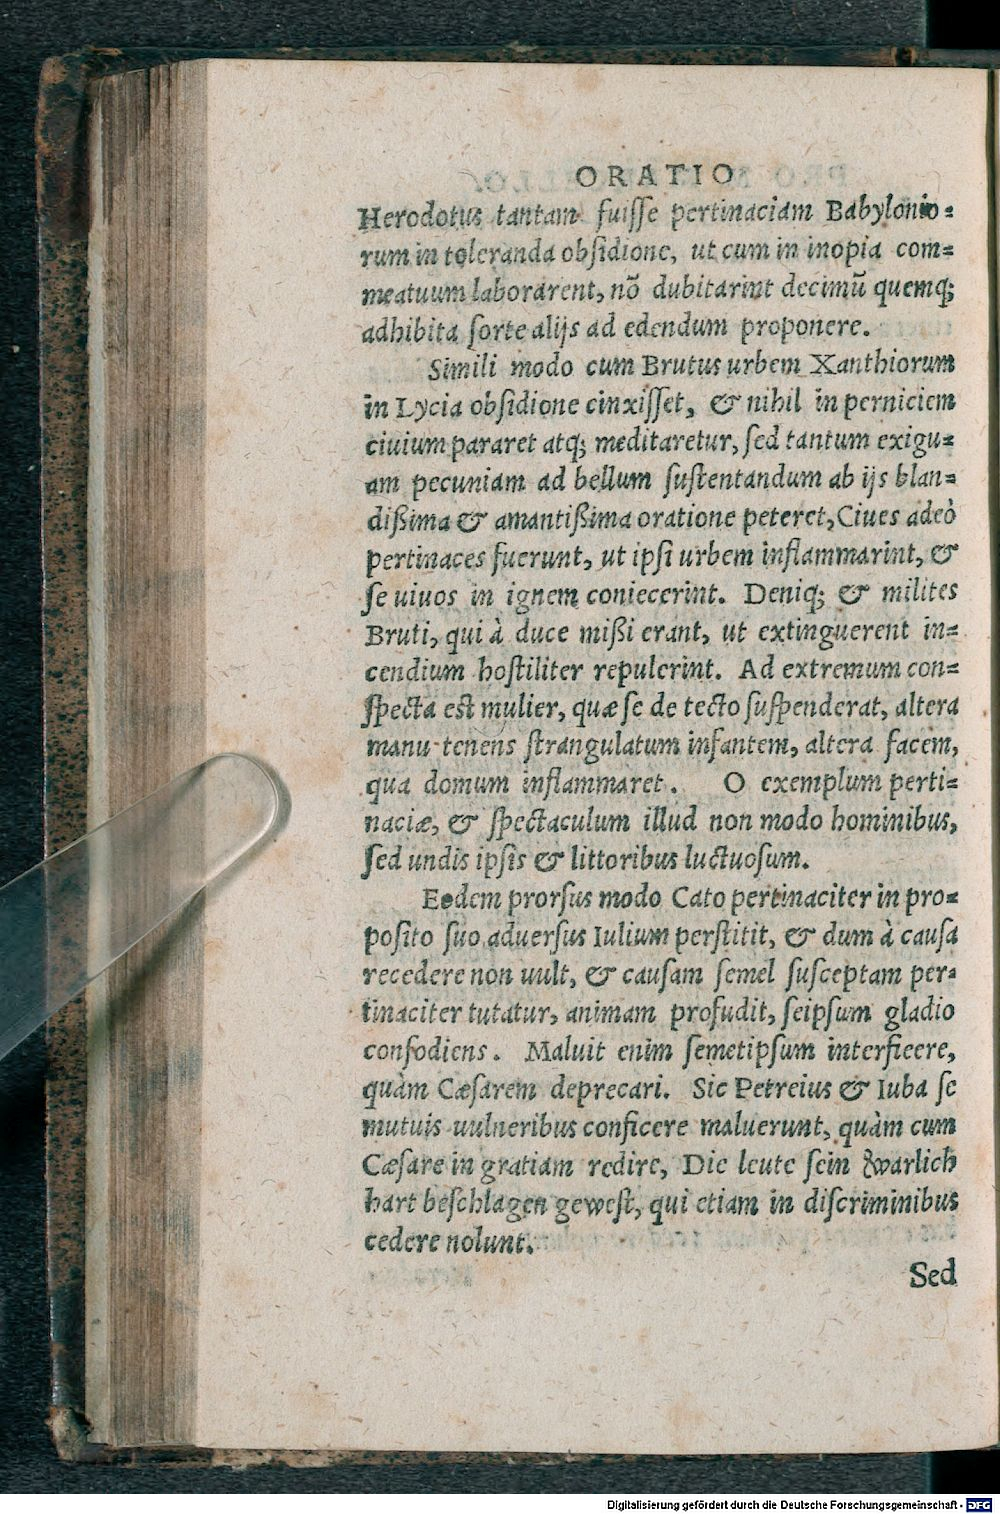 ORATIO
Herodotus tantam fuisse pertinaciam Babylonio=
rum in toleranda obsidione, ut cum in inopia com=
meatuum laborarent, nõ dubitarint decimũ quemq;
adhibita sorte alijs ad edendum proponere.
Simili modo cum Brutus urbem Xanthiorum
in Lycia obsidione cinxisset, & nihil in perniciem
ciuium pararet atq; meditaretur, sed tantum exigu=
am pecuniam ad bellum sustentandum ab ijs blan=
dißima & amantißima oratione peteret, Ciues adeò
pertinaces fuerunt, ut ipsi urbem inflammarint, &
se uiuos in ignem coniecerint. Deniq; & milites
Bruti, qui à duce mißi erant, ut extinguerent in=
cendium hostiliter repulerint. Ad extremum con=
specta est mulier, quæ se de tecto suspenderat, altera
manu tenens strangulatum infantem, altera facem,
qua domum inflammaret. O exemplum perti=
naciæ, & spectaculum illud non modo hominibus,
sed undis ipsis & littoribus luctuosum.
Eodem prorsus modo Cato pertinaciter in pro=
posito suo aduersus Iulium perstitit, & dum à causa
recedere non uult, & causam semel susceptam per=
tinaciter tutatur, animam profudit, seipsum gladio
confodiens. Maluit enim semetipsum interficere,
quàm Cæsarem deprecari. Sic Petreius & Iuba se
mutuis uulneribus conficere maluerunt, quàm cum
Cæsare in gratiam redire, Die leute sein zwarlich
hart beschlagen gewest, qui etiam in discriminibus
cedere nolunt.
Sed
Digitalisierung gefördert durch die Deutsche Forschungsgemeinschaft - DFG